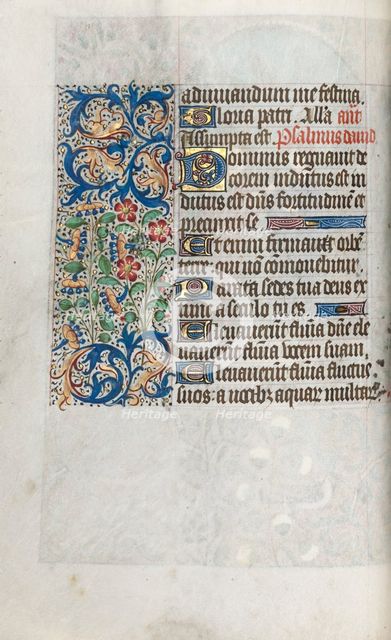 adiuuandum me festina
Gloria patri. Alla ant
Assumpta est Psalmus dauid
Dominus regnauit de
corem indutus est in
dutus est dñs fortitudinē et
precinxit se
Et enim firmauit orbē
terre qui nō commouebitur
Parata sedes tua deus ex
tunc a seculo tu es
Eleuauerūt flumīa dn̄e ele
uauerūt flumīa vocem suam
Eleuauerūt flumīa fluctus
suos a vocibz aquar multar
Heritage
Heritage